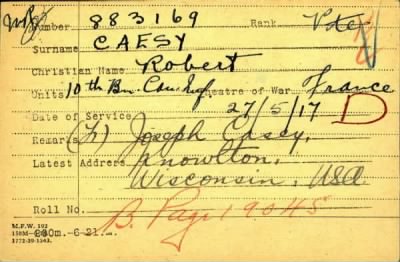 Number 883169 Rank Pte
Surname CAESY
Christian Name Robert
Units 10th Bn. Can. Inf Theatre of War France
Date of Service 27/5/17 D
Remarks (L) Joseph Casey,
Latest Address Knowlton,
Wisconsin, USA.
Roll No. B. Page 19045
M.F.W. 192
1772-39-1563.